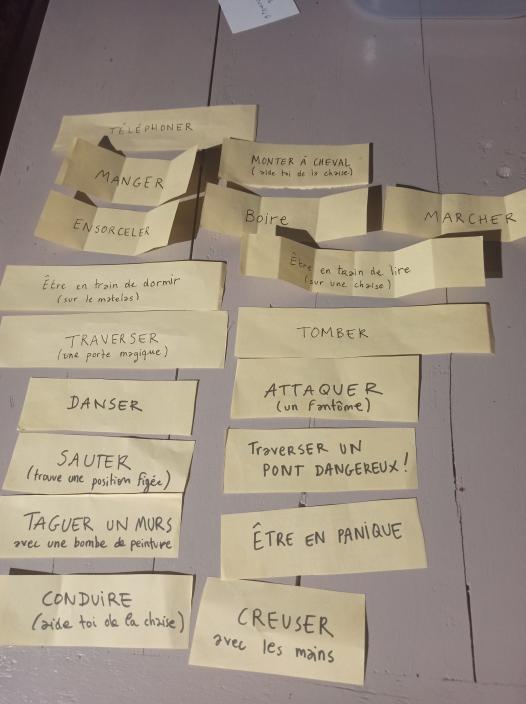 TÉLÉPHONER
MANGER
MONTER À CHEVAL
(aide toi de la chaise)
ENSORCELER
Boire
MARCHER
Être en train de lire
(sur une chaise)
Être en train de dormir
(sur le matelas)
TRAVERSER
(une porte magique)
TOMBER
DANSER
ATTAQUER
(un Fantôme)
SAUTER
(trouve une position figée)
Traverser UN
PONT DANGEREUX!
TAGUER UN MURS
avec une bombe de peinture
ÊTRE EN PANIQUE
CONDUIRE
(aide toi de la chaise)
CREUSER
avec les mains